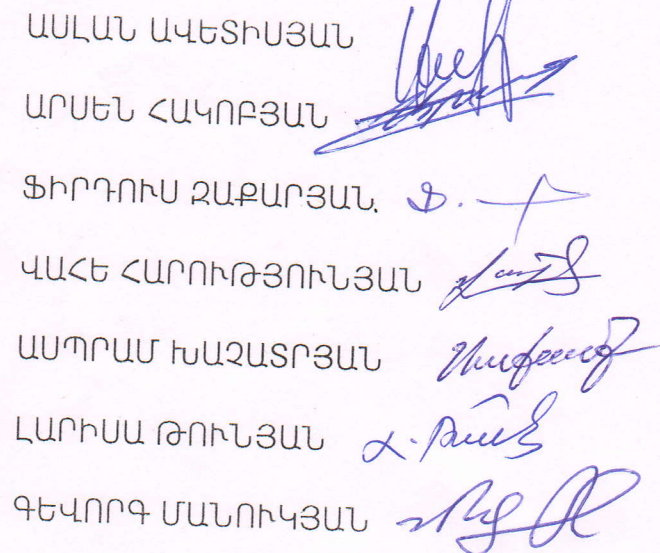 ԱՍԼԱՆ ԱՎԵՏԻՍՅԱՆ
ԱՐՍԵՆ ՀԱԿՈԲՅԱՆ
ՖԻՐԴՈՒՍ ԶԱՔԱՐՅԱՆ
ՎԱՀԵ ՀԱՐՈՒԹՅՈՒՆՅԱՆ
ԱՍՊՐԱՄ ԽԱՉԱՏՐՅԱՆ
ԼԱՐԻՍԱ ԹՈՒՆՅԱՆ
ԳԵՎՈՐԳ ՄԱՆՈՒԿՅԱՆ